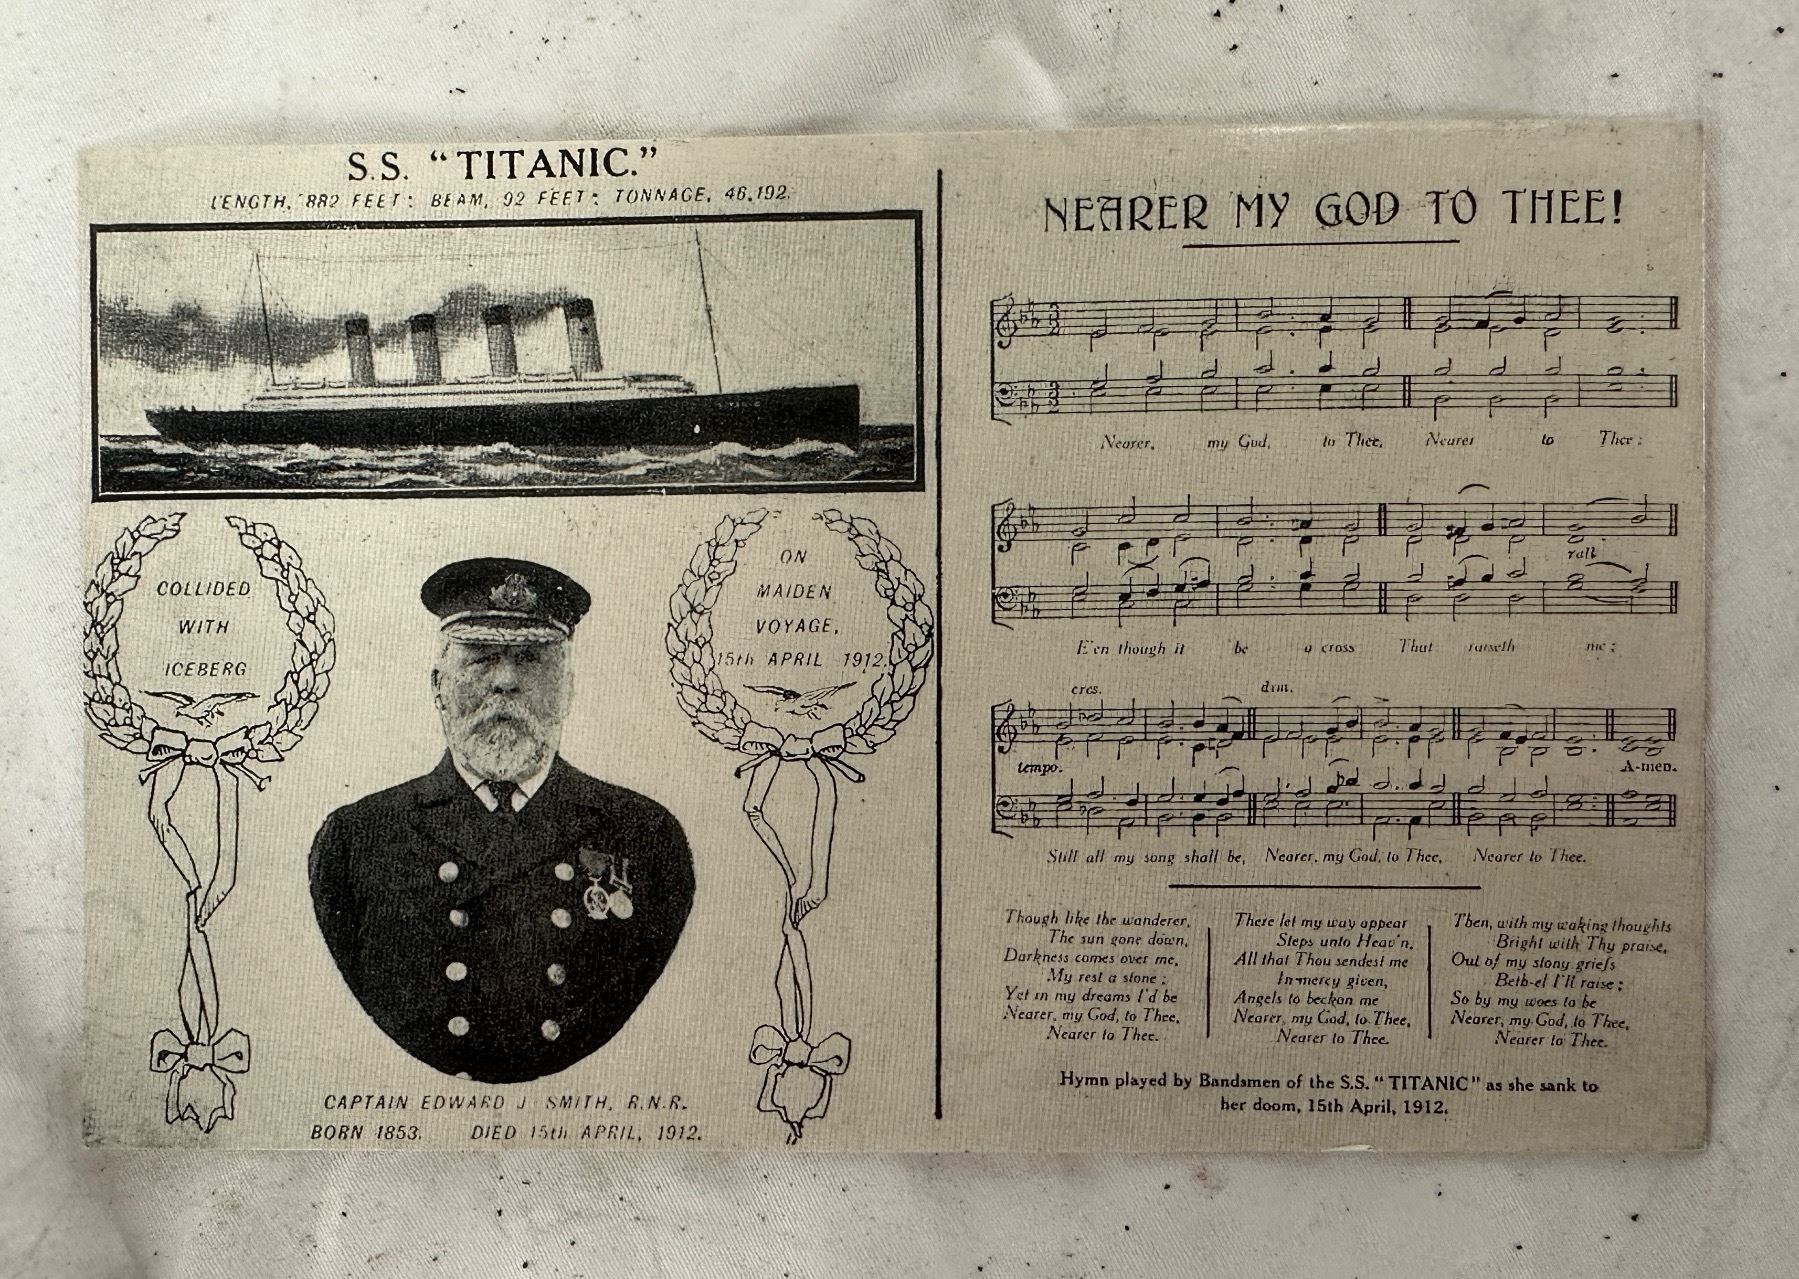 S.S. "TITANIC."
LENGTH, 882 FEET: BEAM, 92 FEET: TONNAGE, 46,192.
COLLIDED
WITH
ICEBERG
ON
MAIDEN
VOYAGE,
15th APRIL 1912.
CAPTAIN EDWARD J SMITH, R.N.R.
BORN 1853. DIED 15th APRIL, 1912.
NEARER MY GOD TO THEE!
Nearer, my God, to Thee, Nearer to Thee:
rall
E'en though it be a cross That raiseth me;
cres. dim.
tempo. A-men.
Still all my song shall be, Nearer, my God, to Thee, Nearer to Thee.
Though like the wanderer,
The sun gone down,
Darkness comes over me,
My rest a stone;
Yet in my dreams I'd be
Nearer, my God, to Thee,
Nearer to Thee.
There let my way appear
Steps unto Heav'n,
All that Thou sendest me
In mercy given,
Angels to beckon me
Nearer, my God, to Thee,
Nearer to Thee.
Then, with my waking thoughts
Bright with Thy praise,
Out of my stony griefs
Beth-el I'll raise;
So by my woes to be
Nearer, my God, to Thee,
Nearer to Thee.
Hymn played by Bandsmen of the S.S. "TITANIC" as she sank to
her doom, 15th April, 1912.